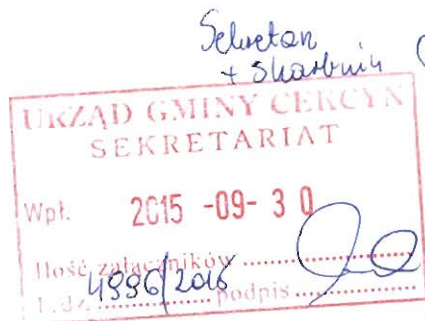 Sekretarz
+ Skarbnik
URZĄD GMINY CEKCYN
SEKRETARIAT
Wpł. 2015 -09- 30
Ilość załączników ..............
L.dz. 4996/2016 podpis ..............